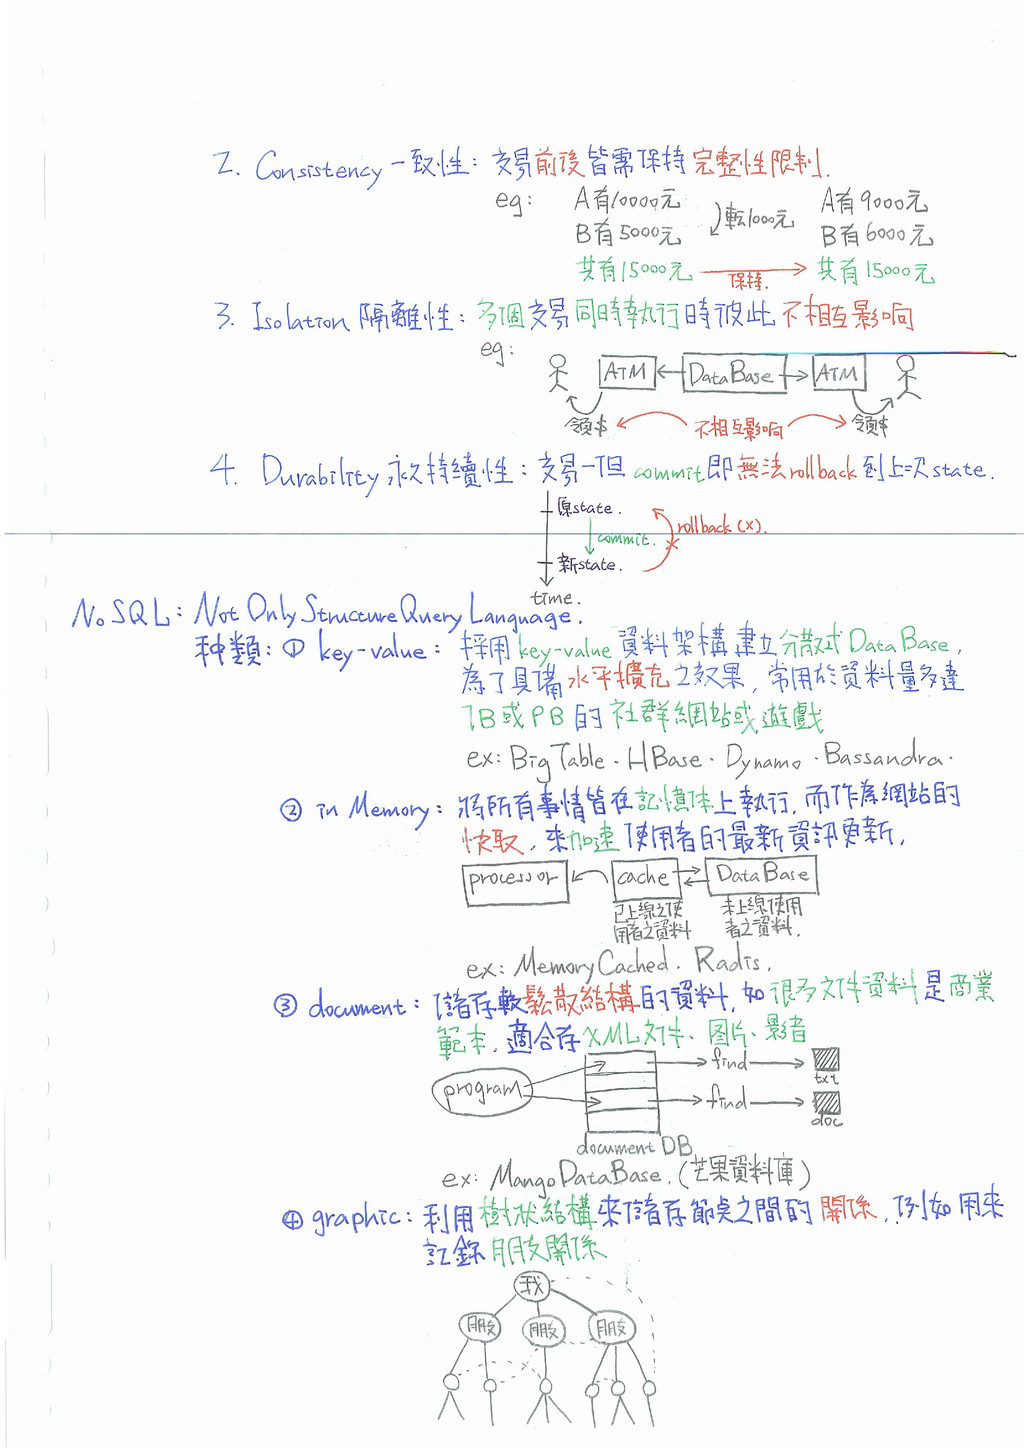 2. Consistency 一致性：交易前後皆需保持完整性限制.
eg: A有10000元 轉1000元 A有9000元
B有5000元 B有6000元
共有15000元 保持. 共有15000元
3. Isolation 隔離性：多個交易同時執行時彼此不相互影响
eg:
ATM DataBase ATM
領钱 不相互影响 領钱
4. Durability 永久持續性：交易一但commit即無法rollback到上一次state.
原state.
commit. rollback(x).
新state.
time.
NoSQL: Not Only Structure Query Language.
种類：① key-value：採用key-value資料架構建立分散式DataBase,
為了具備水平擴充之效果，常用於資料量多達
TB或PB的社群網站或遊戲
ex: BigTable、HBase、Dynamo、Bassandra.
② in Memory：將所有事情皆在記憶体上執行，而作為網站的
快取，來加速使用者的最新資訊更新.
processor cache DataBase
已上線之使 未上線使用
用者之資料 者之資料.
ex: MemoryCached. Radis.
③ document：儲存較鬆散結構的資料，如很多文件資料是商業
範本，適合存XML文件、图片、影音
program find txt
find doc
document DB
ex: MangoDataBase.(芒果資料庫)
④ graphic：利用樹狀結構來儲存節点之間的關係，例如用來
記錄朋友關係
我
朋友 朋友 朋友